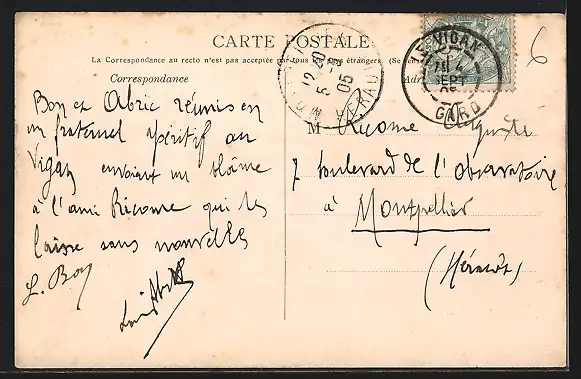 CARTE POSTALE
La Correspondance au recto n'est pas acceptée par tous les pays étrangers. (Se
Correspondance
Bon et Abric réunis en
un fraternel apéritif au
Vigan envoient un blâme
à l'ami Ricome qui les
laisse sans nouvelles
L. Bon
Louis Abric
M Ricome
7 boulevard de l'Observatoire
à Montpellier
(Hérault)
LE VIGAN
SEPT
05
GARD
12 20
5
05
HERAULT
6